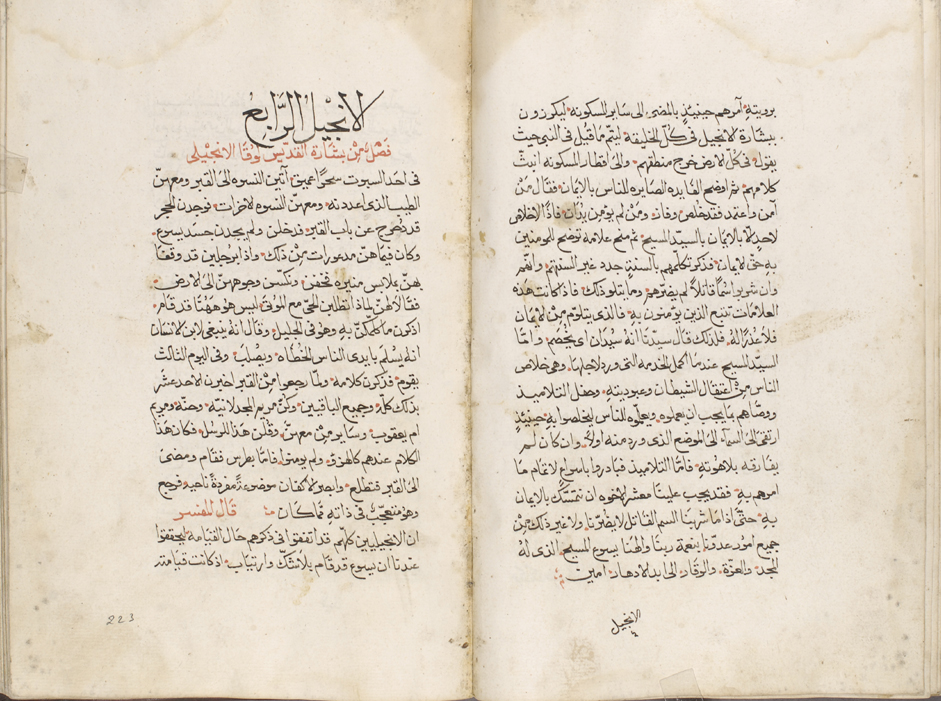 برويته امرهم حينيذٍ بالمضى الى ساير المسكونه ليكرزون
ببشارة الانجيل فى كل الخليقة ليتم ما قيل فى النبى حيث
يقول فى كل الارض خرج منطقهم والى اقطار المسكونه انبث
كلامهم ثم اوضح الفايده الصايره للناس بالايمان فقال من
آمن واعتمد فقد خلص وفاز ومن لم يومن يدان فاذًا لاخلاص
لاحدٍ الا بالايمان بالسيد المسيح ثم منح علامة توضح للمومنين
به حق الايمان فذكر تكلمهم بالسنةٍ جدد غير السنتهم وانهم
وان شربوا سمًا قاتلاً لم يضرهم وما يتلو ذلك فاذ كانت هذه
العلامات تتبع الذين يومنون به فالذى يتلوم من الايمان
فلا عذرًا له فلذلك قال سيدنا انه سيدان اى يخصم واما
السيد المسيح عندما اكمل الخدمة التى ورد لاجلها وهى خلاص
الناس من اعتقال الشيطان وعبوديته وجعل التلاميذ
ووصاهم بما يجب ان يعملوه ويعلموه الناس ليخلصوا به حينيذٍ
ارتقى الى السمآء الى الموضع الذى ورد منه اولاً وان كان لم
يفارقه بلاهوته فاما التلاميذ فبادروا باسراع لاتمام ما
امرهم به فقد يجب علينا معشر الاخوه ان نتمسك بالايمان
به حتى اذا ما شربنا السم القاتل لا يضرنا ولا غير ذلك من
جميع امور عدونا بنعمة ربنا والهنا يسوع المسيح الذى له
المجد والعزة والوقار الى ابد الادهار امين
الانجيل
الانجيل الرابع
فصل من بشارة القديس لوقا الانجيلى
فى احد السبوت سحرًا عميق اتين النسوه الى القبر ومعهن
الطيب الذى اعددنه ومعهن النسوه الاخرات فوجدن الحجر
قد دُحرج عن باب القبر فدخلن ولم يجدن جسد يسوع
وكان فيما هن مذعورات من ذلك واذا برجلين قد وقفا
بهن بملابس منيره فخفن ونكسن وجوههن الى الارض
فقالا لهن لماذا تطلبن الحى مع الموتى ليس هو ههنا قد قام
اذكرن ما كلمكن به وهو فى الجليل وقال انه ينبغى لابن الانسان
انه يسلم بايدى الناس الخطاه ويصلب وفى اليوم الثالث
يقوم فذكرن كلامه ولما رجعوا من القبر اخبرن الاحد عشر
بذلك كله وجميع الباقيين وكن مريم المجدلانية وحنه ومريم
ام يعقوب وساير من معهن وقلن هذا للرسل فكان هذا
الكلام عندهم كالهزؤ ولم يومنوا فاما بطرس فقام ومضى
الى القبر فتطلع وابصر الاكفان موضوعةً مفردةً ناحيه فرجع
وهو متعجب فى ذاته مما كان قال المفسر
ان الانجيليين كلهم قد اتفقوا فى ذكرهم حال القيامه ليحققوا
عندنا ان يسوع قد قام بلا شك وارتياب اذ كانت قيامته
223